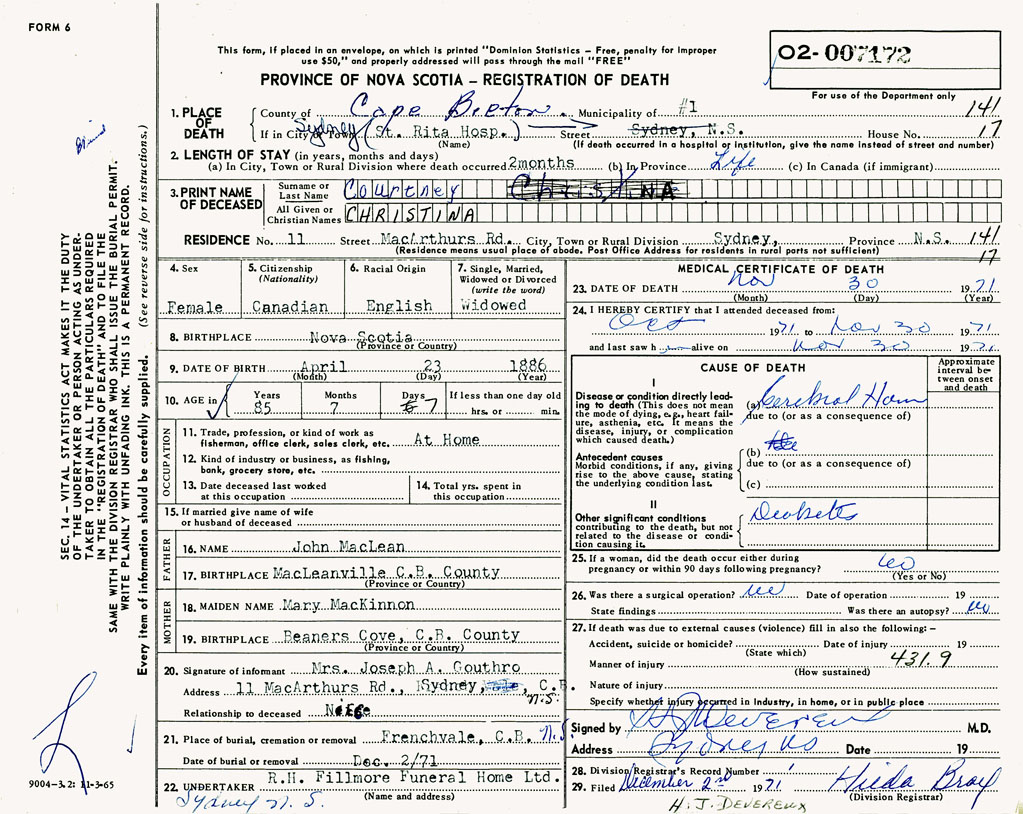 FORM 6
This form, if placed in an envelope, on which is printed "Dominion Statistics – Free, penalty for improper
use $50," and properly addressed will pass through the mail "FREE"
O2- 007172
PROVINCE OF NOVA SCOTIA – REGISTRATION OF DEATH
For use of the Department only
1. PLACE OF DEATH
County of Cape Breton Municipality of #1 141
If in City or Town Sydney (St. Rita Hosp.) Street Sydney, N.S. House No. 17
(Name) (If death occurred in a hospital or institution, give the name instead of street and number)
2. LENGTH OF STAY (in years, months and days)
(a) In City, Town or Rural Division where death occurred 2months (b) In Province Life (c) In Canada (if immigrant)
3. PRINT NAME OF DECEASED
Surname or Last Name Courtney CHRISTINA
All Given or Christian Names CHRISTINA
RESIDENCE No. 11 Street MacArthurs Rd. City, Town or Rural Division Sydney, Province N.S. 141
(Residence means usual place of abode. Post Office Address for residents in rural parts not sufficient) 17
4. Sex
Female
5. Citizenship
(Nationality)
Canadian
6. Racial Origin
English
7. Single, Married,
Widowed or Divorced
(write the word)
Widowed
8. BIRTHPLACE Nova Scotia
(Province or Country)
9. DATE OF BIRTH April 23 1886
(Month) (Day) (Year)
10. AGE in
Years 85
Months 7
Days 7
If less than one day
hrs. or min.
OCCUPATION
11. Trade, profession, or kind of work as
fisherman, office clerk, sales clerk, etc. At Home
12. Kind of industry or business, as fishing,
bank, grocery store, etc.
13. Date deceased last worked
at this occupation
14. Total yrs. spent in
this occupation
15. If married give name of wife
or husband of deceased
FATHER
16. NAME John MacLean
17. BIRTHPLACE MacLeanville C.B. County
(Province or Country)
MOTHER
18. MAIDEN NAME Mary MacKinnon
19. BIRTHPLACE Beaners Cove, C.B. County
(Province or Country)
20. Signature of informant Mrs. Joseph A. Gouthro
Address 11 MacArthurs Rd., Sydney, C.B.
N.S.
Relationship to deceased Niece
21. Place of burial, cremation or removal Frenchvale, C.B. N.S.
Date of burial or removal Dec. 2/71
22. UNDERTAKER R.H. Fillmore Funeral Home Ltd.
(Name and address)
Sydney N.S.
MEDICAL CERTIFICATE OF DEATH
23. DATE OF DEATH Nov 30 1971
(Month) (Day) (Year)
24. I HEREBY CERTIFY that I attended deceased from:
Oct 1971 to Nov 30 1971
and last saw h alive on Nov 30 1971
CAUSE OF DEATH
Approximate
interval be-
tween onset
and death
I
Disease or condition directly lead-
ing to death (This does not mean
the mode of dying, e.g., heart fail-
ure, asthenia, etc. It means the
disease, injury, or complication
which caused death.)
(a) Cerebral Hem
due to (or as a consequence of)
Antecedent causes
Morbid conditions, if any, giving
rise to the above cause, stating
the underlying condition last.
(b)
due to (or as a consequence of)
(c)
II
Other significant conditions
contributing to the death, but not
related to the disease or condi-
tion causing it.
Diabetes
25. If a woman, did the death occur either during
pregnancy or within 90 days following pregnancy? No
(Yes or No)
26. Was there a surgical operation? No Date of operation 19
State findings Was there an autopsy? No
27. If death was due to external causes (violence) fill in also the following: –
Accident, suicide or homicide? Date of injury 19
(State which) 431.9
Manner of injury
(How sustained)
Nature of injury
Specify whether injury occurred in industry, in home, or in public place
Signed by H J Devereux M.D.
Address Sydney NS Date 19
28. Division Registrar's Record Number
29. Filed December 2nd 1971 Hilda Bray
(Division Registrar)
H. J. DEVEREUX
SEC. 14 – VITAL STATISTICS ACT MAKES IT THE DUTY
OF THE UNDERTAKER OR PERSON ACTING AS UNDER-
TAKER TO OBTAIN ALL THE PARTICULARS REQUIRED
IN THE "REGISTRATION OF DEATH" AND TO FILE THE
SAME WITH THE DIVISION REGISTRAR WHO SHALL ISSUE THE BURIAL PERMIT.
WRITE PLAINLY WITH UNFADING INK. THIS IS A PERMANENT RECORD.
Every item of information should be carefully supplied. (See reverse side for instructions.)
9004-3.2: 11-3-65